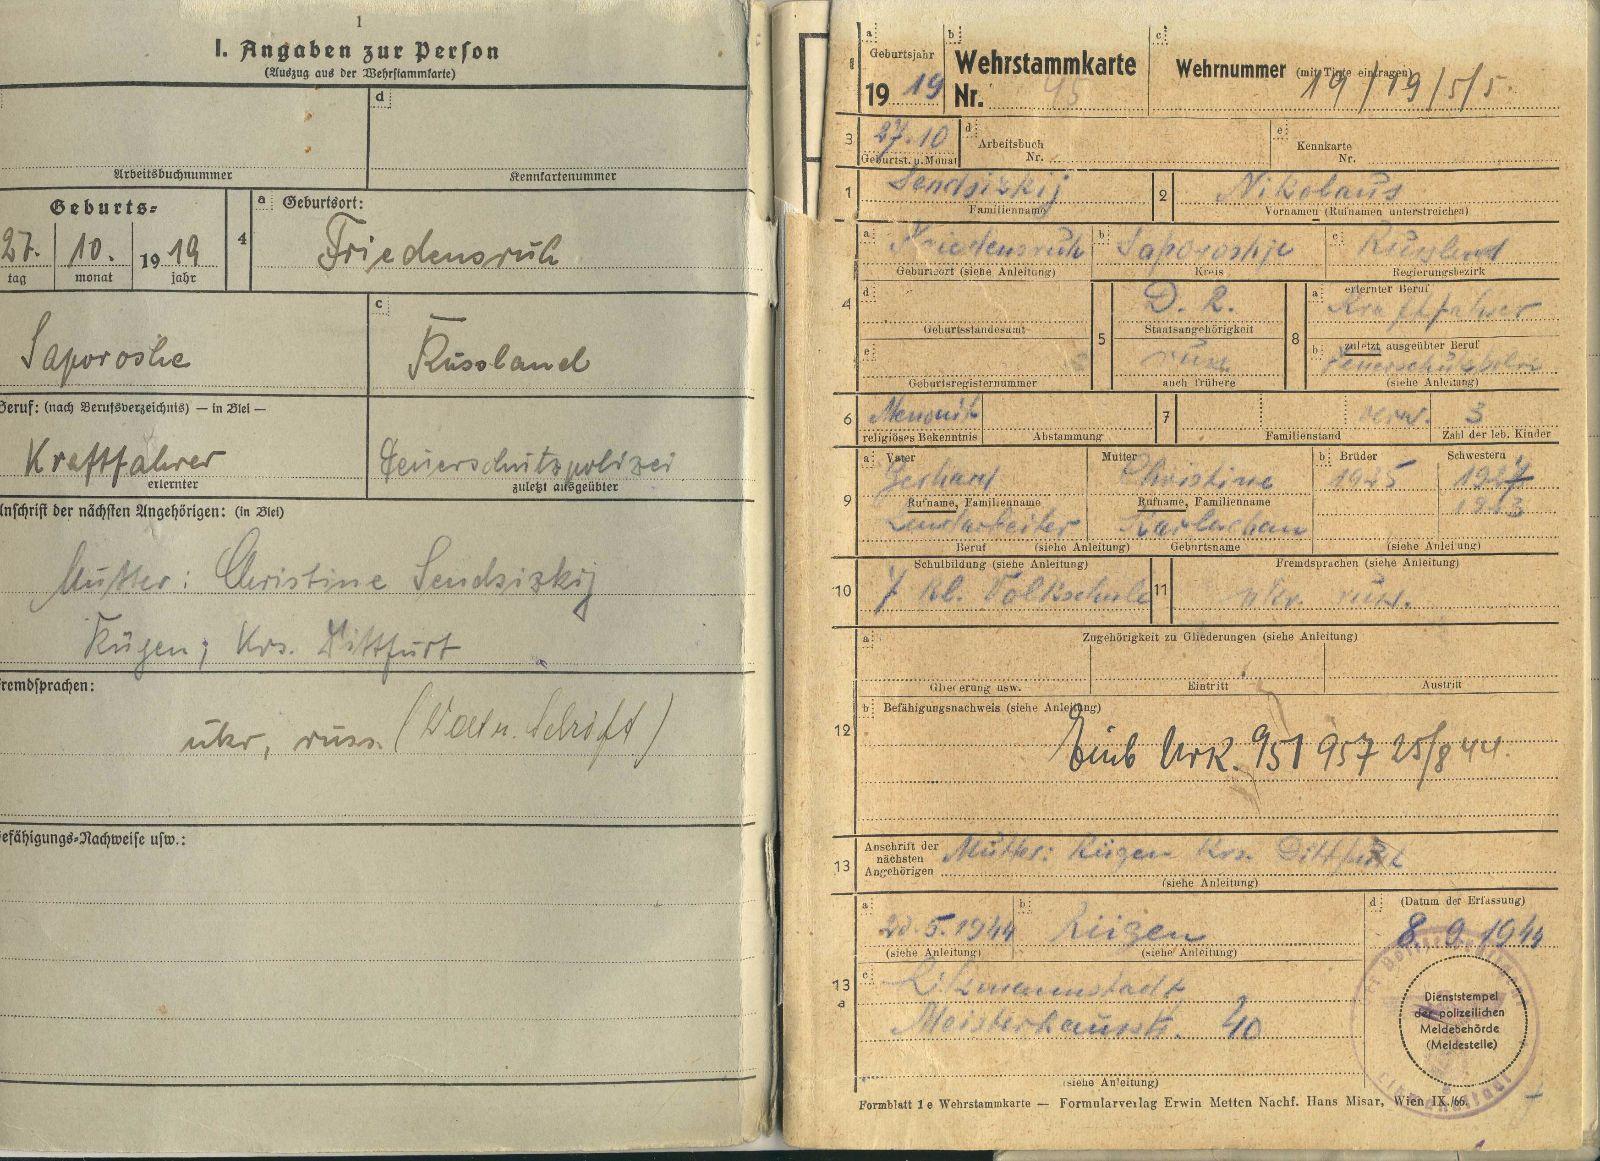 1
I. Angaben zur Person
(Auszug aus der Wehrstammkarte)
d
Arbeitsbuchnummer
Kennkartennummer
Geburts-
27. 10. 19 19
tag monat jahr
4
a Geburtsort:
Friedensruh
Saporoshe
c
Russland
Beruf: (nach Berufsverzeichnis) — in Blei —
Kraftfahrer
erlernter
Feuerschutzpolizei
zuletzt ausgeübter
Anschrift der nächsten Angehörigen: (in Blei)
Mutter: Christine Sendsizkij
Rügen; Krs. Dittfurt
Fremdsprachen:
ukr, russ. (Wort u. Schrift)
Befähigungs-Nachweise usw.:
1
a Geburtsjahr
19 19
b Wehrstammkarte
Nr. 45
c Wehrnummer (mit Tinte eintragen)
19/19/5/5.
3
27.10
Geburtst. u. Monat
d Arbeitsbuch
Nr.
e Kennkarte
Nr.
1
Sendsizkij
Familienname
2
Nikolaus
Vornamen (Rufnamen unterstreichen)
4
a Friedensruh
Geburtsort (siehe Anleitung)
b Saporoshje
Kreis
c Russland
Regierungsbezirk
d
Geburtsstandesamt
e
Geburtsregisternummer
5
D. 2.
Staatsangehörigkeit
russ.
auch frühere
8
a erlernter Beruf
Kraftfahrer
b zuletzt ausgeübter Beruf
Feuerschutzpolizei
(siehe Anleitung)
6
religiöses Bekenntnis
Abstammung
7
Familienstand
3
Zahl der leb. Kinder
9
a Vater
Gerhard
Rufname, Familienname
Landarbeiter
Beruf (siehe Anleitung)
Mutter
Christine
Rufname, Familienname
Geburtsname
b Brüder
1925
Schwestern
1927
1913
(siehe Anleitung)
10
Schulbildung (siehe Anleitung)
7 Kl. Volkschule
11
Fremdsprachen (siehe Anleitung)
ukr. russ.
12
a Zugehörigkeit zu Gliederungen (siehe Anleitung)
Gliederung usw.
Eintritt
Austritt
b Befähigungsnachweis (siehe Anleitung)
Einb Urk. 951 957 25/8 44.
13
Anschrift der
nächsten
Angehörigen
Mutter: Rügen Krs. Dittfurt
(siehe Anleitung)
13 a
a 20.5.1944
(siehe Anleitung)
b Rügen
(siehe Anleitung)
c Litzmannstadt
Meisterhausstr. 40
(siehe Anleitung)
d (Datum der Erfassung)
8.9.1944
Dienststempel
der polizeilichen
Meldebehörde
(Meldestelle)
Formblatt 1 e Wehrstammkarte — Formularverlag Erwin Metten Nachf. Hans Misar, Wien IX./66.